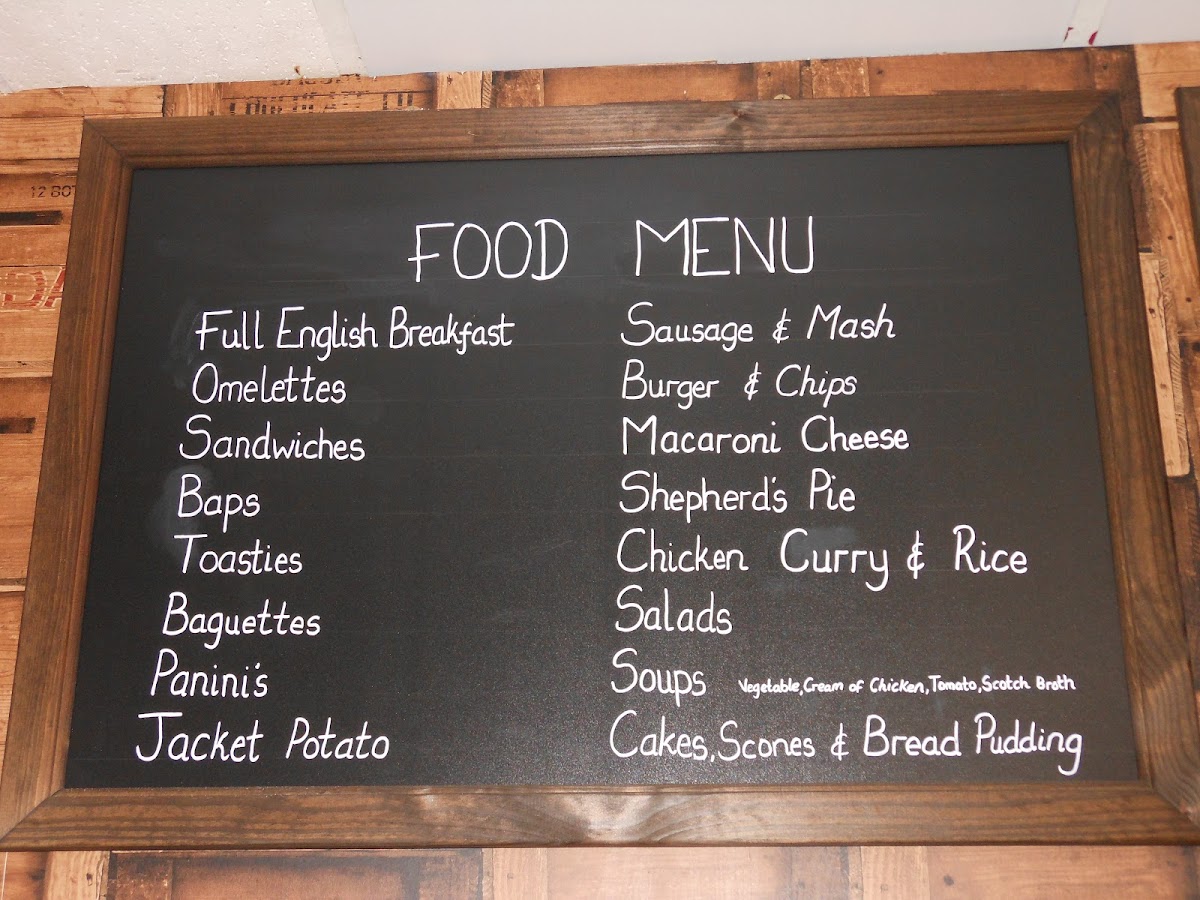 12 BOT
FOOD MENU
Full English Breakfast
Omelettes
Sandwiches
Baps
Toasties
Baguettes
Panini's
Jacket Potato
Sausage & Mash
Burger & Chips
Macaroni Cheese
Shepherd's Pie
Chicken Curry & Rice
Salads
Soups Vegetable, Cream of Chicken, Tomato, Scotch Broth
Cakes, Scones & Bread Pudding